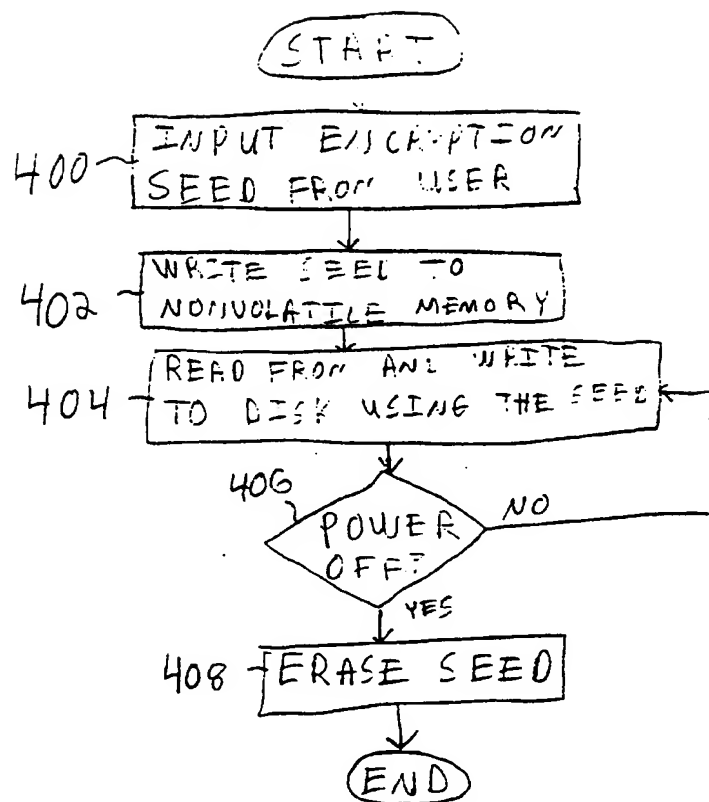 START
400
INPUT ENCRYPTION
SEED FROM USER
402
WRITE SEED TO
NONVOLATILE MEMORY
404
READ FROM AND WRITE
TO DISK USING THE SEED
406
POWER
OFF?
NO
YES
408
ERASE SEED
END